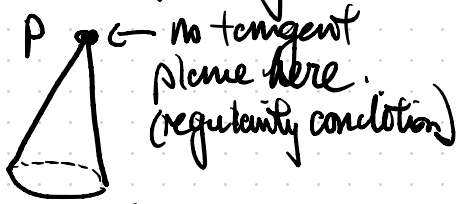 P ← no tangent
plane here.
(regularity condition)